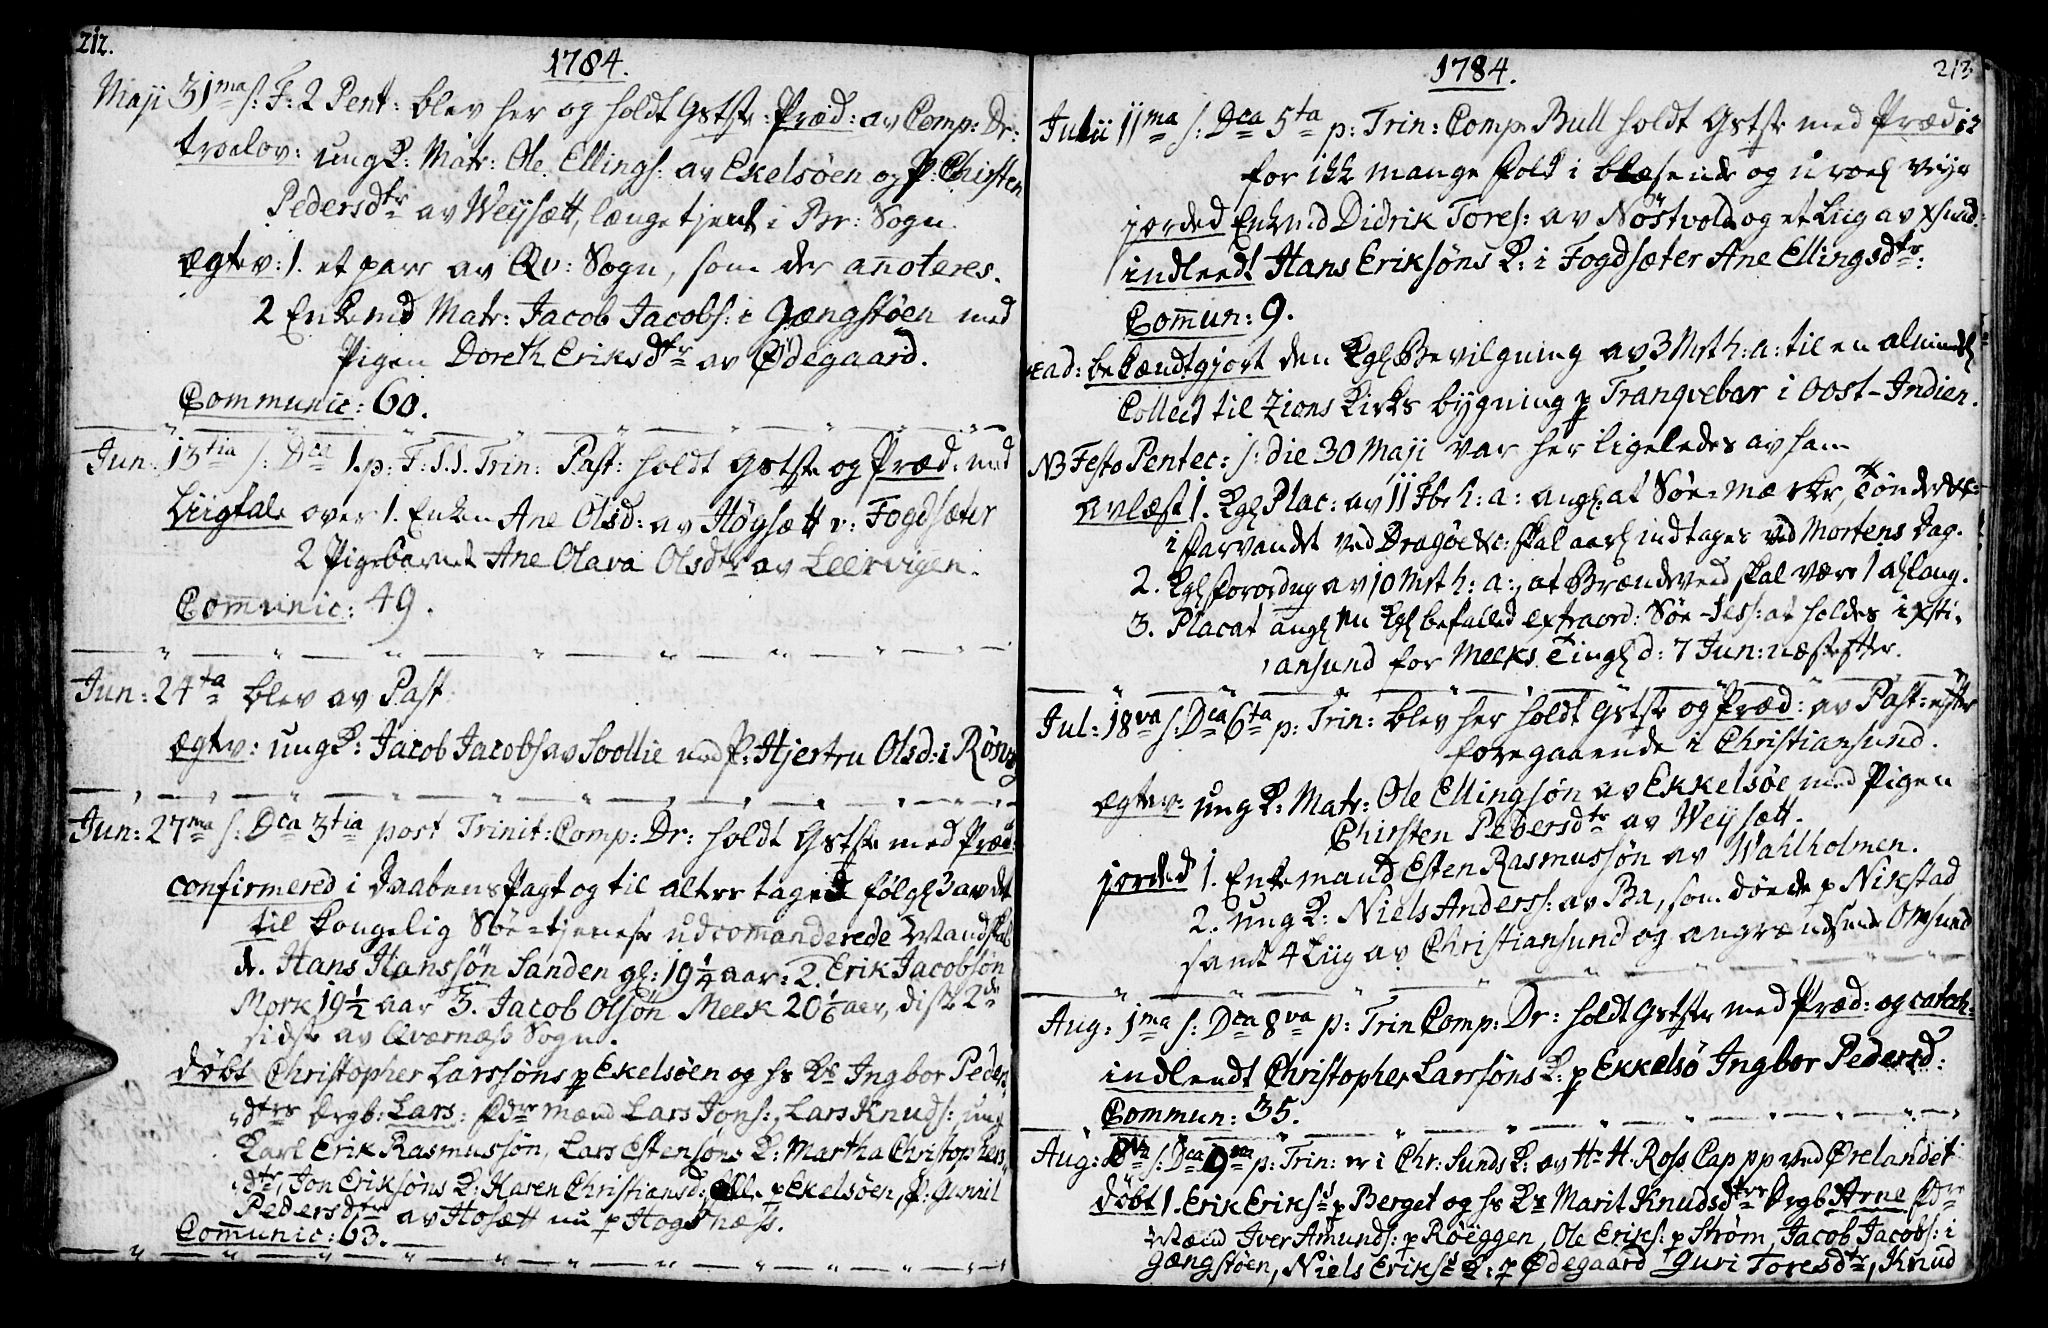 212.
1784.
Maji 31ma s: F: 2 Pent: blev her og holdt Gstste: Præd: av Comp: Dr:
trolov: ung K: Matr: Ole Ellings: av Ekelsöen og P: Chirsten
Pedersdtr av Weysætt, længe tjent i Br: Sogn
ægtev: 1. et parr av Qv: Sogn, som der anoteres.
2 Enkemd Matr: Jacob Jacobs: i Gængstöen med
Pigen Doreth Eriksdtr av Ødegaard.
Communic: 60.
Jun: 13tia s: Dca 1. p: F: S.S. Trin: Past: holdt Gstste og Præd: med
Liigtale over 1. Enken Ane Olsd: av Høgsætt v: Fogdsæter
2 Pigebarnet Ane Olava Olsdtr av Leervigen.
Comunic: 49.
Jun: 24ta blev av Past
ægtev: ung K: Jacob Jacobs av Soollie med P: Hjertru Olsd: i Røsvog
Jun: 27ma s: Dca 3tia post Trinit: Comp: Dr: holdt Gstste med Præd:
confirmered i Daabens Pagt og til alters taged følgl 3 av de
til kongelig Söe-tjeneste udcomanderede Mandskab
N. Hans Hanssøn Sanden gl: 19 1/4 aar: 2. Erik Jacobsøn
Mork 19 1/2 aar 3. Jacob Olsøn Meek 20 1/6 aar, disse 2de
sidste av Qværnæss Sogn.
döbt Christopher Larssøns p Ekelsöen og hs Ke Ingbor Peders
dtrs drgb: Lars: Fdr mænd Lars Jons:, Lars Knuds: ung
Karl Erik Rasmussøn, Lars Estensøns K: Martha Christophers
dtr, Jon Eriksøns K: Karen Christiansd: alle p Ekelsöen, P: Gunnil
Pedersdtr av Hosætt nu p Hognæss.
Comunic: 63.
213
1784.
Julii 11ma s: Dca 5ta p: Trin: Comp Bull holdt Gstste med Præd
for ikk mange Folk i blæsende og uroel veyr
jorded Enkemd Didrik Tores: av Nöstvold og et Liig av Xsund.
indleedt Hans Eriksøns K: i Fogdsæter Ane Ellingsdtr:
Comun: 9.
ead: bekændtgjort den Kgl Bevilgning av 3 Mrt h: a: til en almindl
Collect til Zions kirkes bygning p Tranqvebar i Oost-Indien.
NB Festo Pentec: s: die 30 Maji var her ligeledes av ham
avlæst 1. Kgl Plac: av 11 Fbr h: a: angl: at Söe-mærker, Tönder &c:
i farvandet ved Dragöe &c: skal aarl indtages ved Mortens Dag.
2. Kgl Forordng av 10 Mrt h: a:, at Brændeved skal være 1 al lang.
3. Placat angl en Kgl befalled extraord: Söe-Sess: at holdes i Xsti-
ansund for Meeks Tingl d: 7 Jun: næstefter.
Jul: 18va s: Dca 6ta p: Trin: blev her holdt Gstste og Præd: av Past: efter
foregaaende i Christiansund.
ægtev: ung K: Matr: Ole Ellingsøn av Ekkelsöe med Pigen
Chirsten Pedersdtr av Weysætt.
jorded 1. Enkemand Esten Rasmussøn av Wahlholmen.
2. Ung K: Niels Anderss: av Ba, som döede p Nikstad
samt 4 Liig av Christiansund og angrændsende Omsund
Aug: 1ma s: Dca 8va p: Trin Comp: Dr: holdt Gstste med Præd: og catech:
indleedt Christopher Larssøns K: p Ekkelsö Ingbor Pedersd:
Commun: 35.
Aug: 8va s: Dca 9na p: Trin: er i Chr: Sunds K: av Hr H. Ross Cap pp ved Ørelandet
döbt 1. Erik Eriks: p Berget og hs Ke Marit Knudsdtrs drgb Arne Fdr
Mænd Iver Amunds: p Röeggen, Ole Eriks: p Ström, Jacob Jacobs: i
Gængstöen, Niels Eriks: K: p Ødegaard Guri Toresdtr, Knud